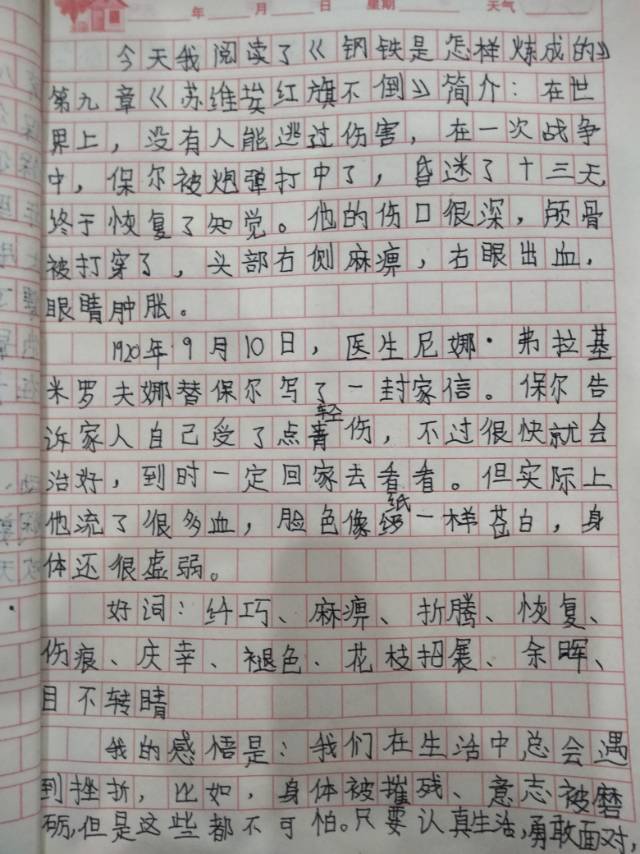 年 月 日 星期 天气
今天我阅读了《钢铁是怎样炼成的》
第九章《苏维埃红旗不倒》简介：在世
界上，没有人能逃过伤害，在一次战争
中，保尔被炮弹打中了，昏迷了十三天，
终于恢复了知觉。他的伤口很深，颅骨
被打穿了，头部右侧麻痹，右眼出血，
眼睛肿胀。
1920年9月10日，医生尼娜·弗拉基
米罗夫娜替保尔写了一封家信。保尔告
诉家人自己受了点轻伤，不过很快就会
治好，到时一定回家去看看。但实际上
他流了很多血，脸色像纸一样苍白，身
体还很虚弱。
好词：纤巧、麻痹、折腾、恢复、
伤痕、庆幸、褪色、花枝招展、余晖、
目不转睛
我的感悟是：我们在生活中总会遇
到挫折，比如，身体被摧残、意志被磨
砺，但是这些都不可怕。只要认真生活，勇敢面对，